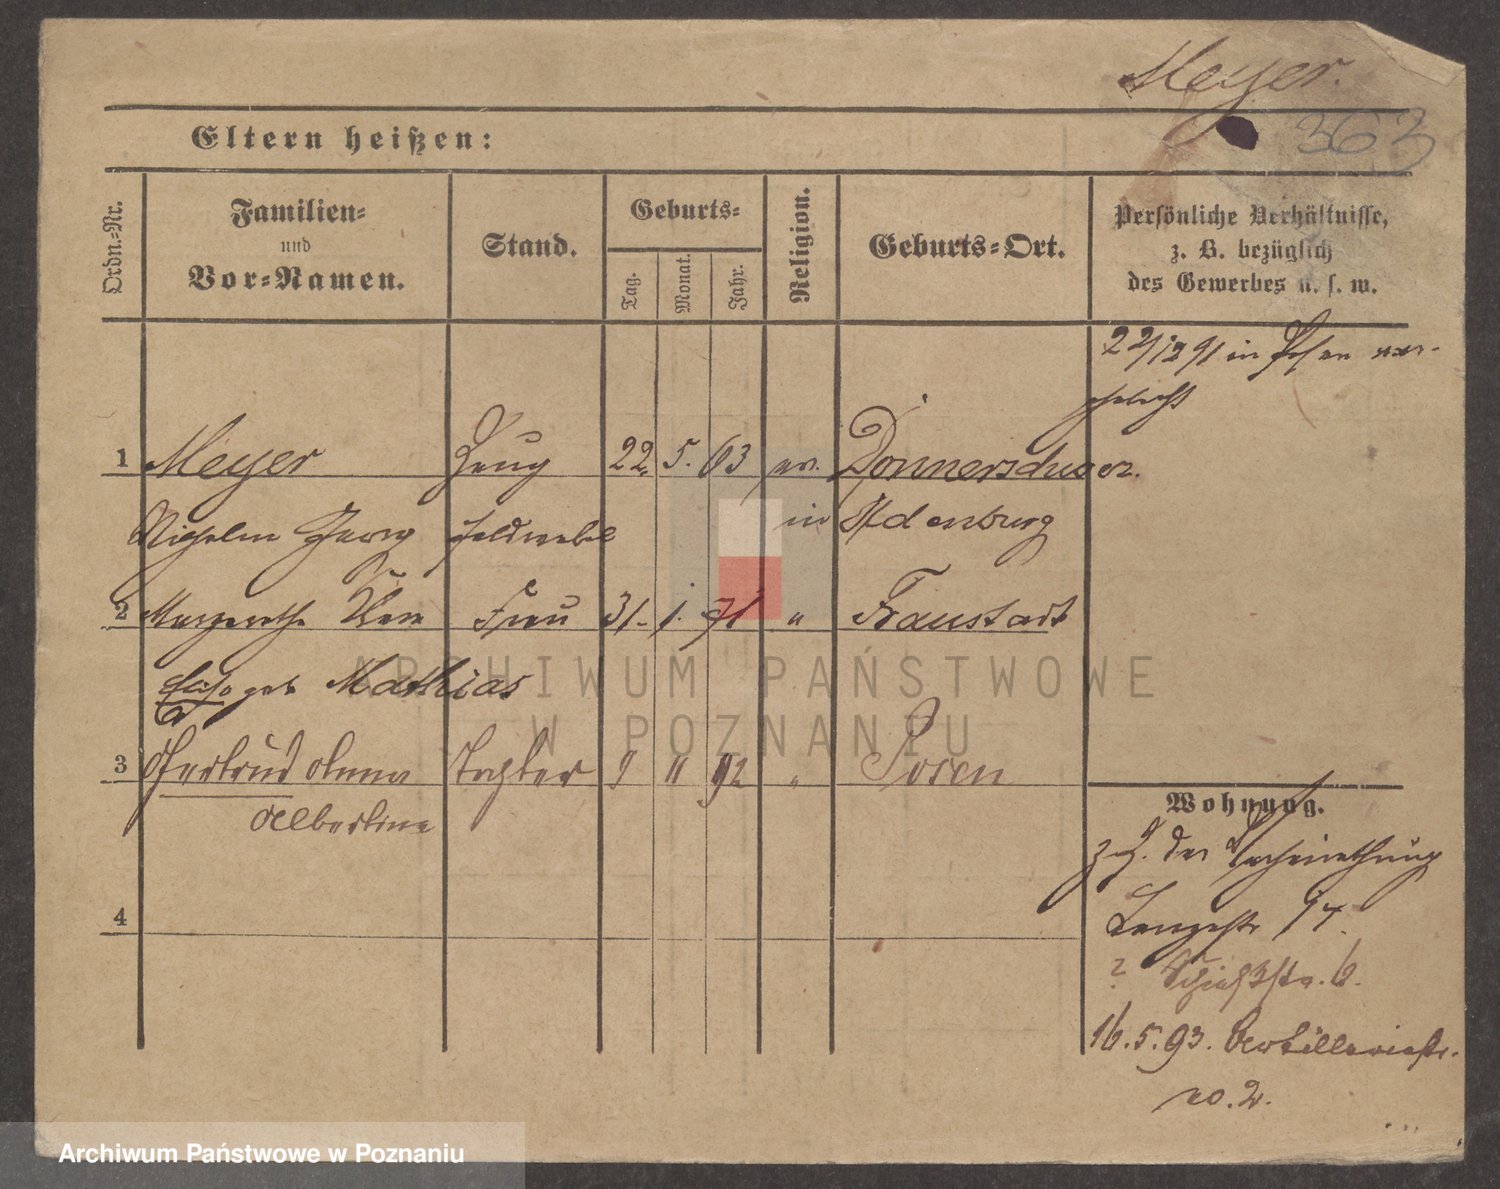 Meyer.
363
Eltern heißen:
Ordn.-Nr.
Familien-
und
Vor-Namen.
Stand.
Geburts-
Tag.
Monat.
Jahr.
Religion.
Geburts-Ort.
Persönliche Verhältnisse,
z. B. bezüglich
des Gewerbes u. s. w.
22/12 91 in Posen ver-
ehelicht
1 Meyer Zeug 22. 5. 63 ev. Donnerschwee
Wilhelm Georg Feldwebel in Oldenburg
2 Margarethe Frau 31. 1. 71 " Fraustadt
geb Mathias
3 Gertrud Anna Tochter 9 11 92 " Posen
Albertine
Wohnung.
z. Z. der Verheirathung
Langestr
? Schießstr. 6.
16. 5. 93. Artilleriestr.
no. 2.
4
ARCHIWUM PAŃSTWOWE
W POZNANIU
Archiwum Państwowe w Poznaniu